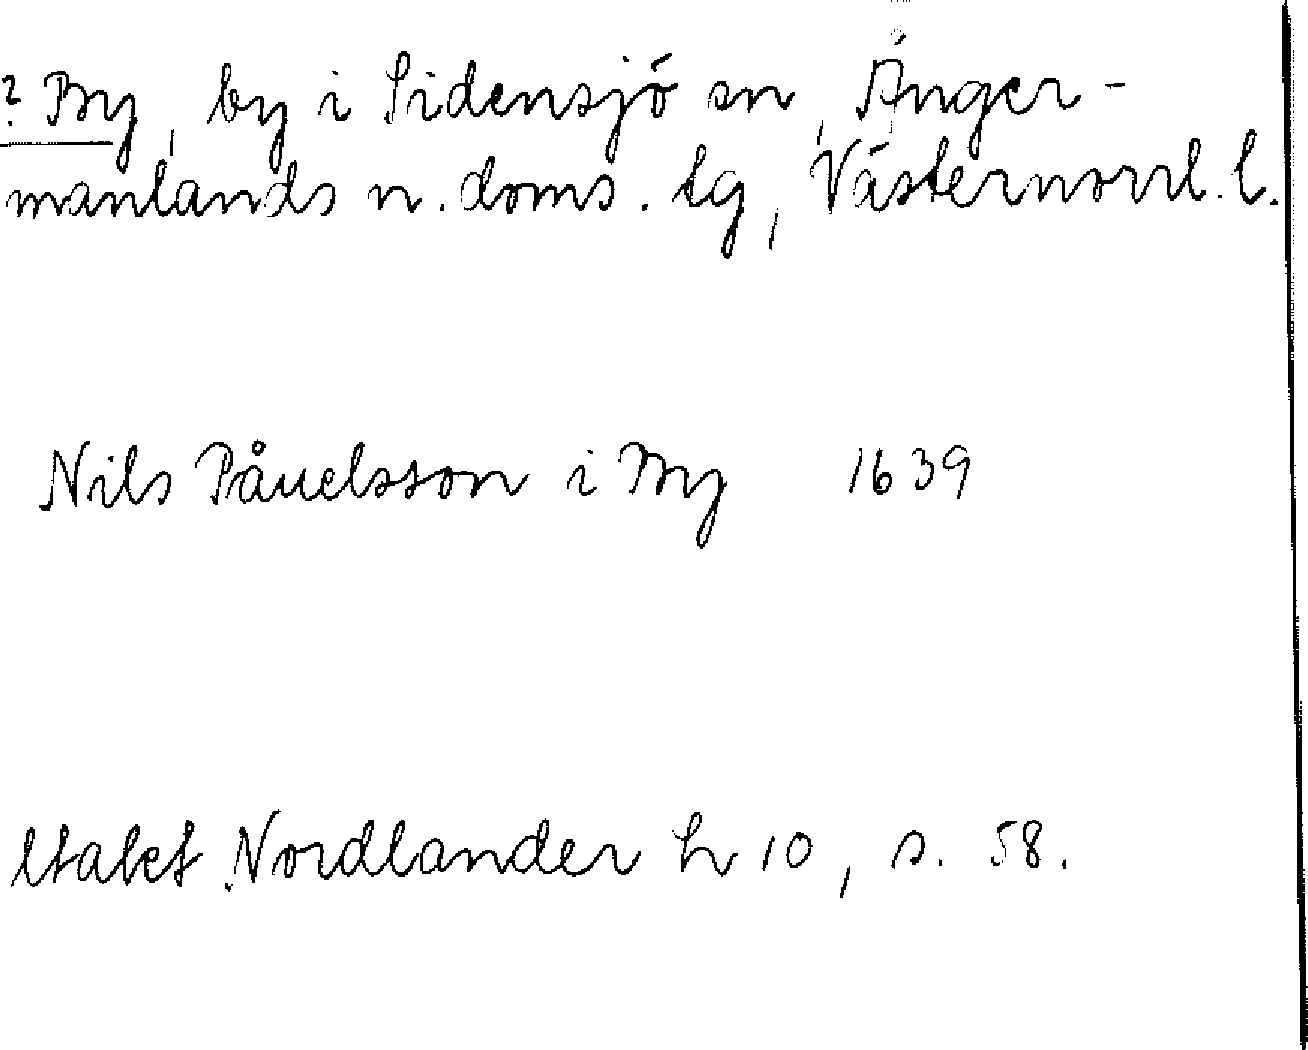 ? By, by i Sidensjö sn, Ånger-
manlands n. doms. lg, Västernorrl. l.
Nils Påuelsson i By 1639
ltalet Nordlander h 10, s. 58.